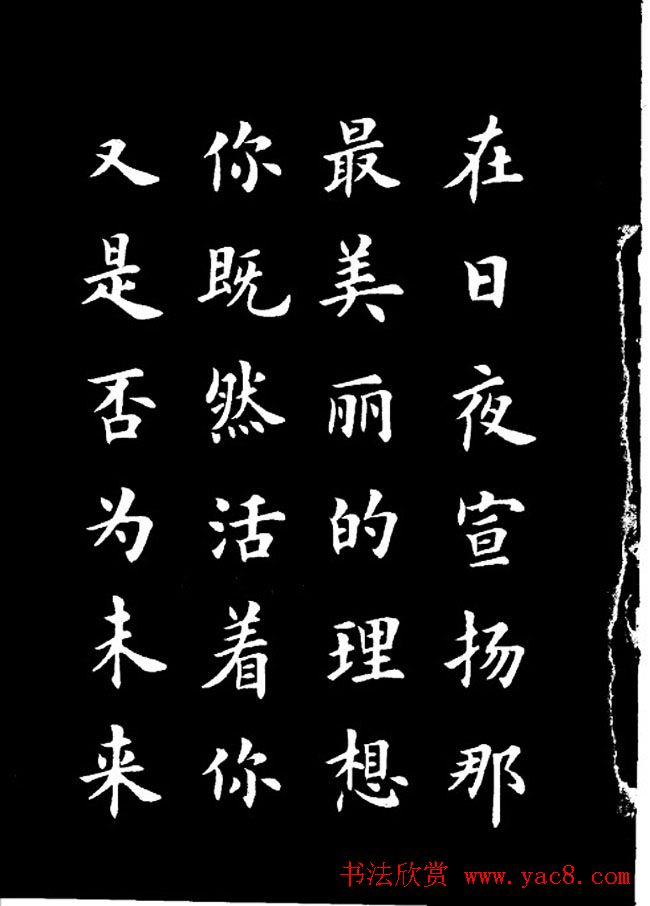 在日夜宣扬那
最美丽的理想
你既然活着你
又是否为未来
书法欣赏 www.yac8.com